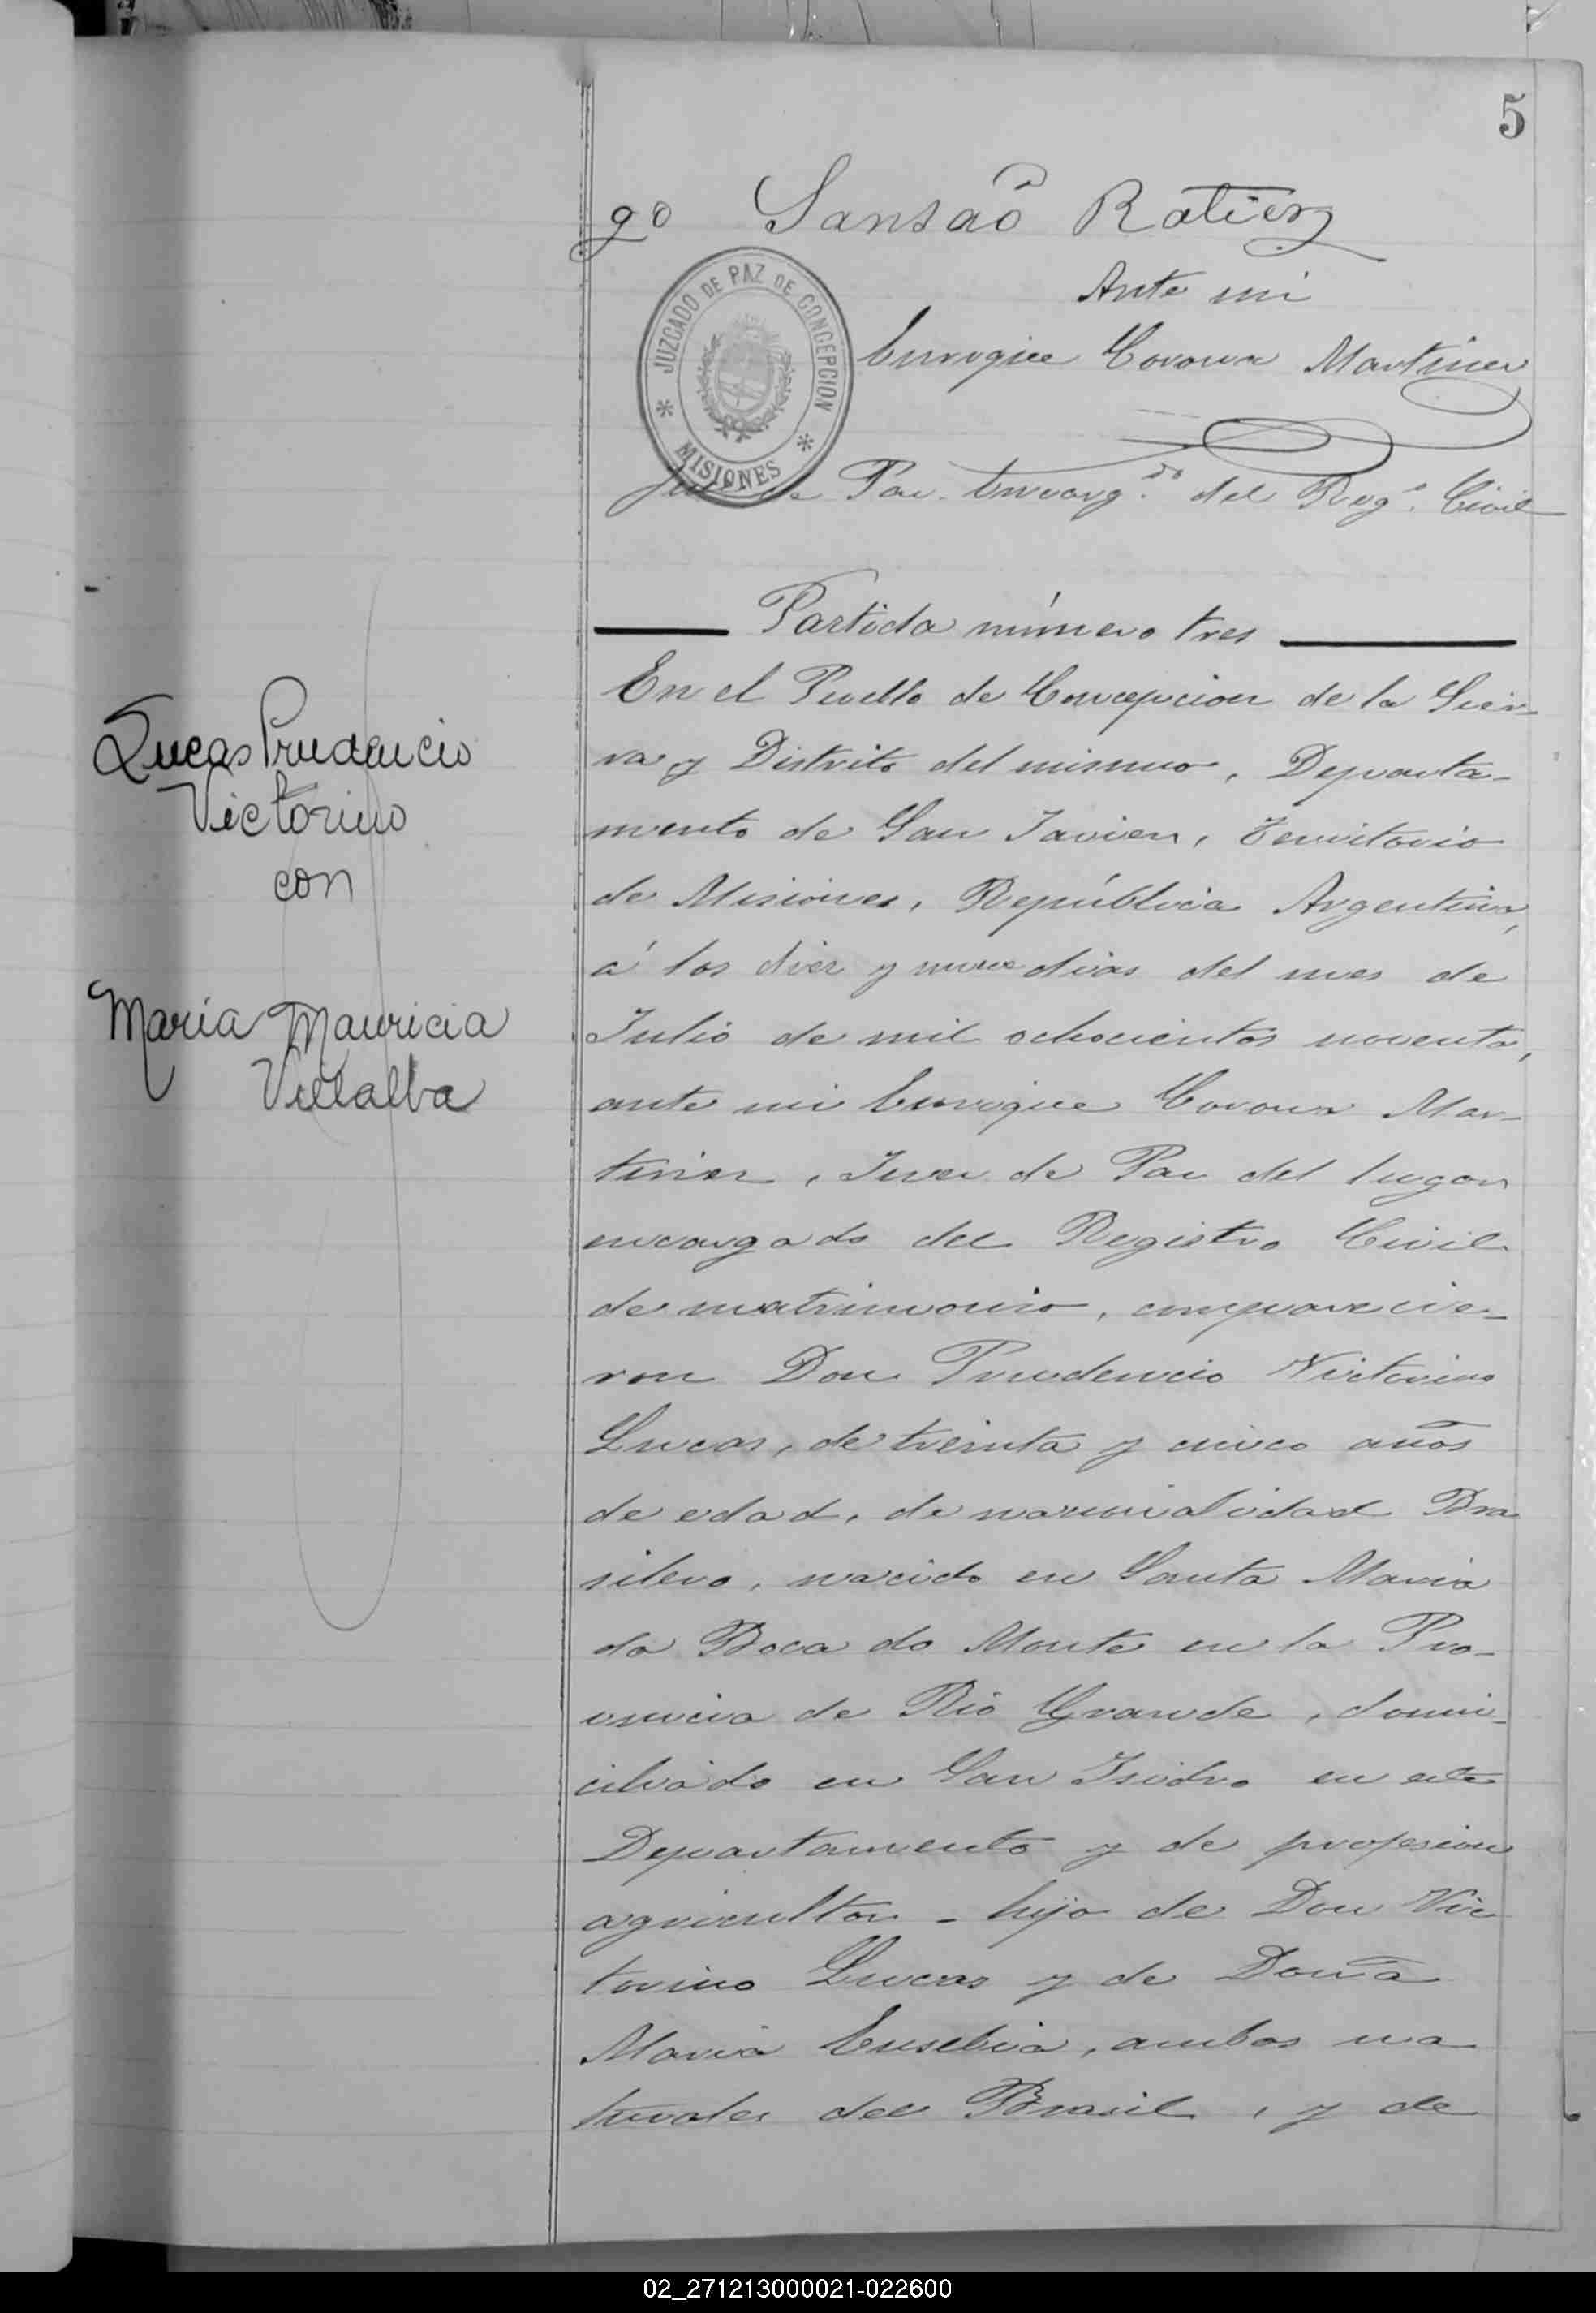 5
go Sansaõ Ratier
Ante mi
Enrique Corona Martinez
JUZGADO DE PAZ DE CONCEPCION
* MISIONES *
Juez de Paz Encarg.do del Reg.o Civil
Partida número tres
En el Pueblo de Concepcion de la Sier-
ra y Distrito del mismo, Departa-
mento de San Javier, Territorio
de Misiones, República Argentina,
á los diez y nueve dias del mes de
Julio de mil ochocientos noventa,
ante mi Enrique Corona Mar-
tinez, Juez de Paz del lugar
encargado del Registro Civil
de matrimonio, comparecie-
ron Don Prudencio Victorino
Lucas, de treinta y cinco años
de edad, de nacionalidad Bra
silero, nacido en Santa Maria
da Boca do Monte en la Pro-
vincia de Rio Grande, domi-
ciliado en San Isidro en este
Departamento y de profesion
agricultor - hijo de Don Vic
torino Lucas y de Doña
Maria Eusebia, ambos na
turales del Brasil, y de
Lucas Prudencio
Victorino
con
Maria Mauricia
Villalba
02_271213000021-022600